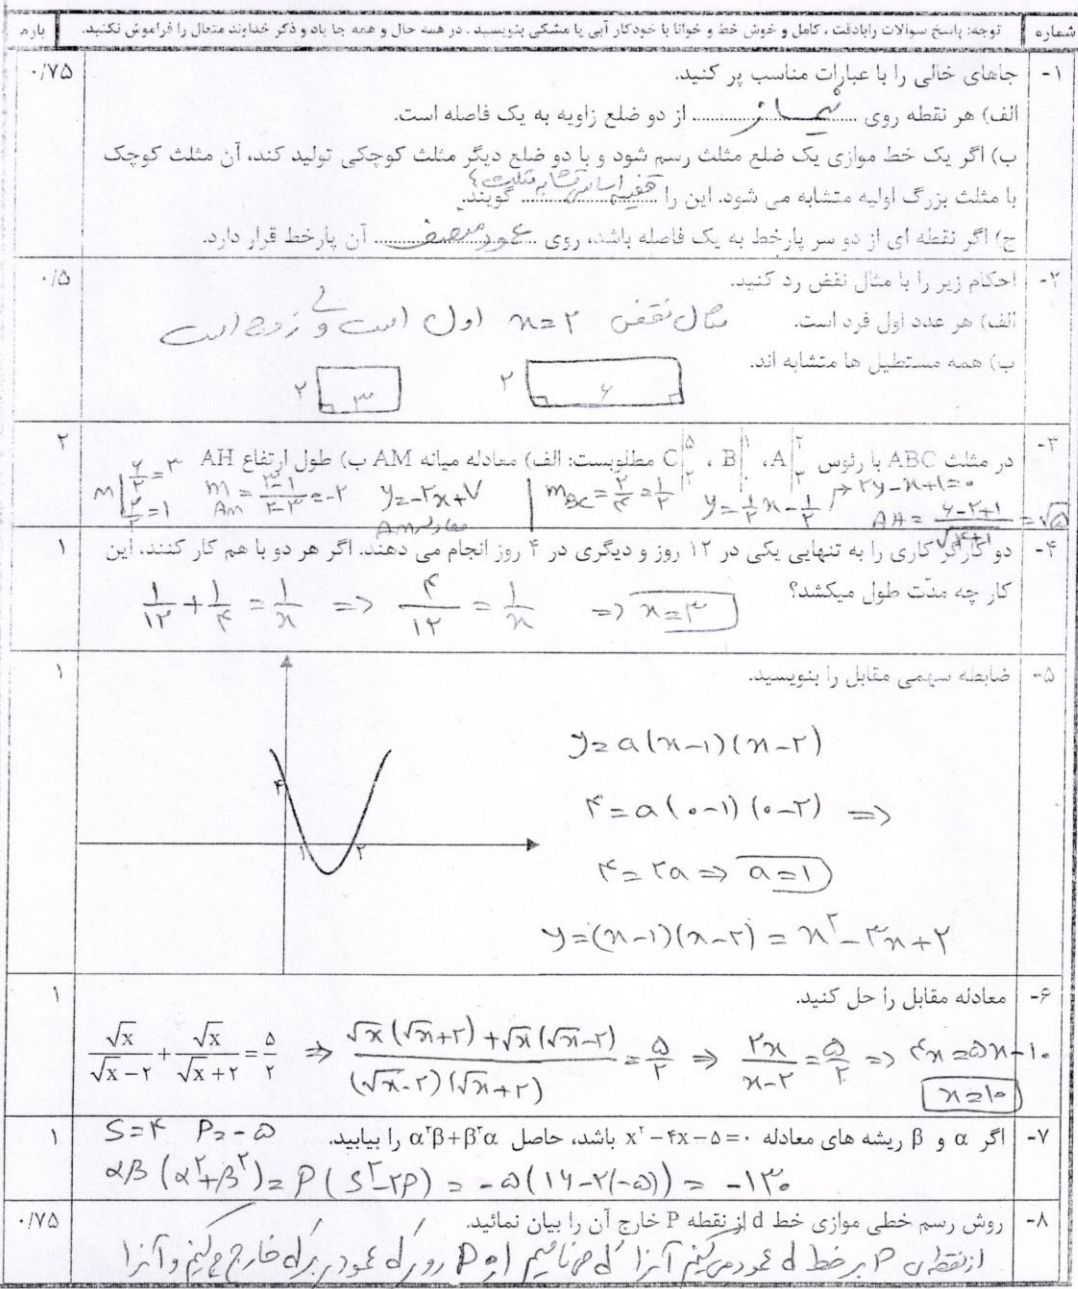 شماره
توجه: پاسخ سوالات رابادقت ، کامل و خوش خط و خوانا با خودکار آبی یا مشکی بنویسید . در همه حال و همه جا یاد و ذکر خداوند متعال را فراموش نکنید.
بارم
۱- جاهای خالی را با عبارات مناسب پر کنید. ۰/۷۵
الف) هر نقطه روی نیمساز از دو ضلع زاویه به یک فاصله است.
ب) اگر یک خط موازی یک ضلع مثلث رسم شود و با دو ضلع دیگر مثلث کوچکی تولید کند، آن مثلث کوچک
با مثلث بزرگ اولیه متشابه می شود. این را قضیه اساسی تشابه مثلث ها گویند.
ج) اگر نقطه ای از دو سر پارخط به یک فاصله باشد، روی عمود منصف آن پارخط قرار دارد.
۲- احکام زیر را با مثال نقض رد کنید. ۰/۵
الف) هر عدد اول فرد است. مثال نقض n=۲ اول است ولی زوج است
ب) همه مستطیل ها متشابه اند.
۲ ۶ ۲ ۳
۳- در مثلث ABC با رئوس A|۲ ۳ ، B|۱ ۰ ، C|۵ ۲ مطلوبست: الف) معادله میانه AM ب) طول ارتفاع AH ۲
M|۶/۲=۳ ۲/۲=۱ m AM = (۳-۱)/(۲-۳) = -۲ y=-۲x+۷ معادله AM m BC = ۲/۴ = ۱/۲ y=۱/۲x-۱/۲ → ۲y-x+۱=۰ AH = (۶-۲+۱)/√(۴+۱) = √۵
۴- دو کارگر کاری را به تنهایی یکی در ۱۲ روز و دیگری در ۴ روز انجام می دهند. اگر هر دو با هم کار کنند، این ۱
کار چه مدّت طول میکشد؟
۱/۱۲ + ۱/۴ = ۱/x => ۴/۱۲ = ۱/x => x=۳
۵- ضابطه سهمی مقابل را بنویسید. ۱
۴ ۱ ۲
y=a(x-۱)(x-۲)
۴=a(۰-۱)(۰-۲) =>
۴=۲a => a=۱
y=(x-۱)(x-۲) = x²-۳x+۲
۶- معادله مقابل را حل کنید. ۱
√x/(√x-۲) + √x/(√x+۲) = ۵/۲ => (√x(√x+۲)+√x(√x-۲))/((√x-۲)(√x+۲)) = ۵/۲ => ۲x/(x-۲) = ۵/۲ => ۴x=۵x-۱۰
x=۱۰
۷- اگر α و β ریشه های معادله x²-۴x-۵=۰ باشد، حاصل α³β+β³α را بیابید. S=۴ P=-۵ ۱
αβ(α²+β²)=P(S²-۲P) = -۵(۱۶-۲(-۵)) = -۱۳۰
۸- روش رسم خطی موازی خط d از نقطه P خارج آن را بیان نمائید. ۰/۷۵
از نقطه ی P بر خط d عمود می کنیم آنرا d' می نامیم از P روی d' عمود بر d' خارج می کنیم و آنرا